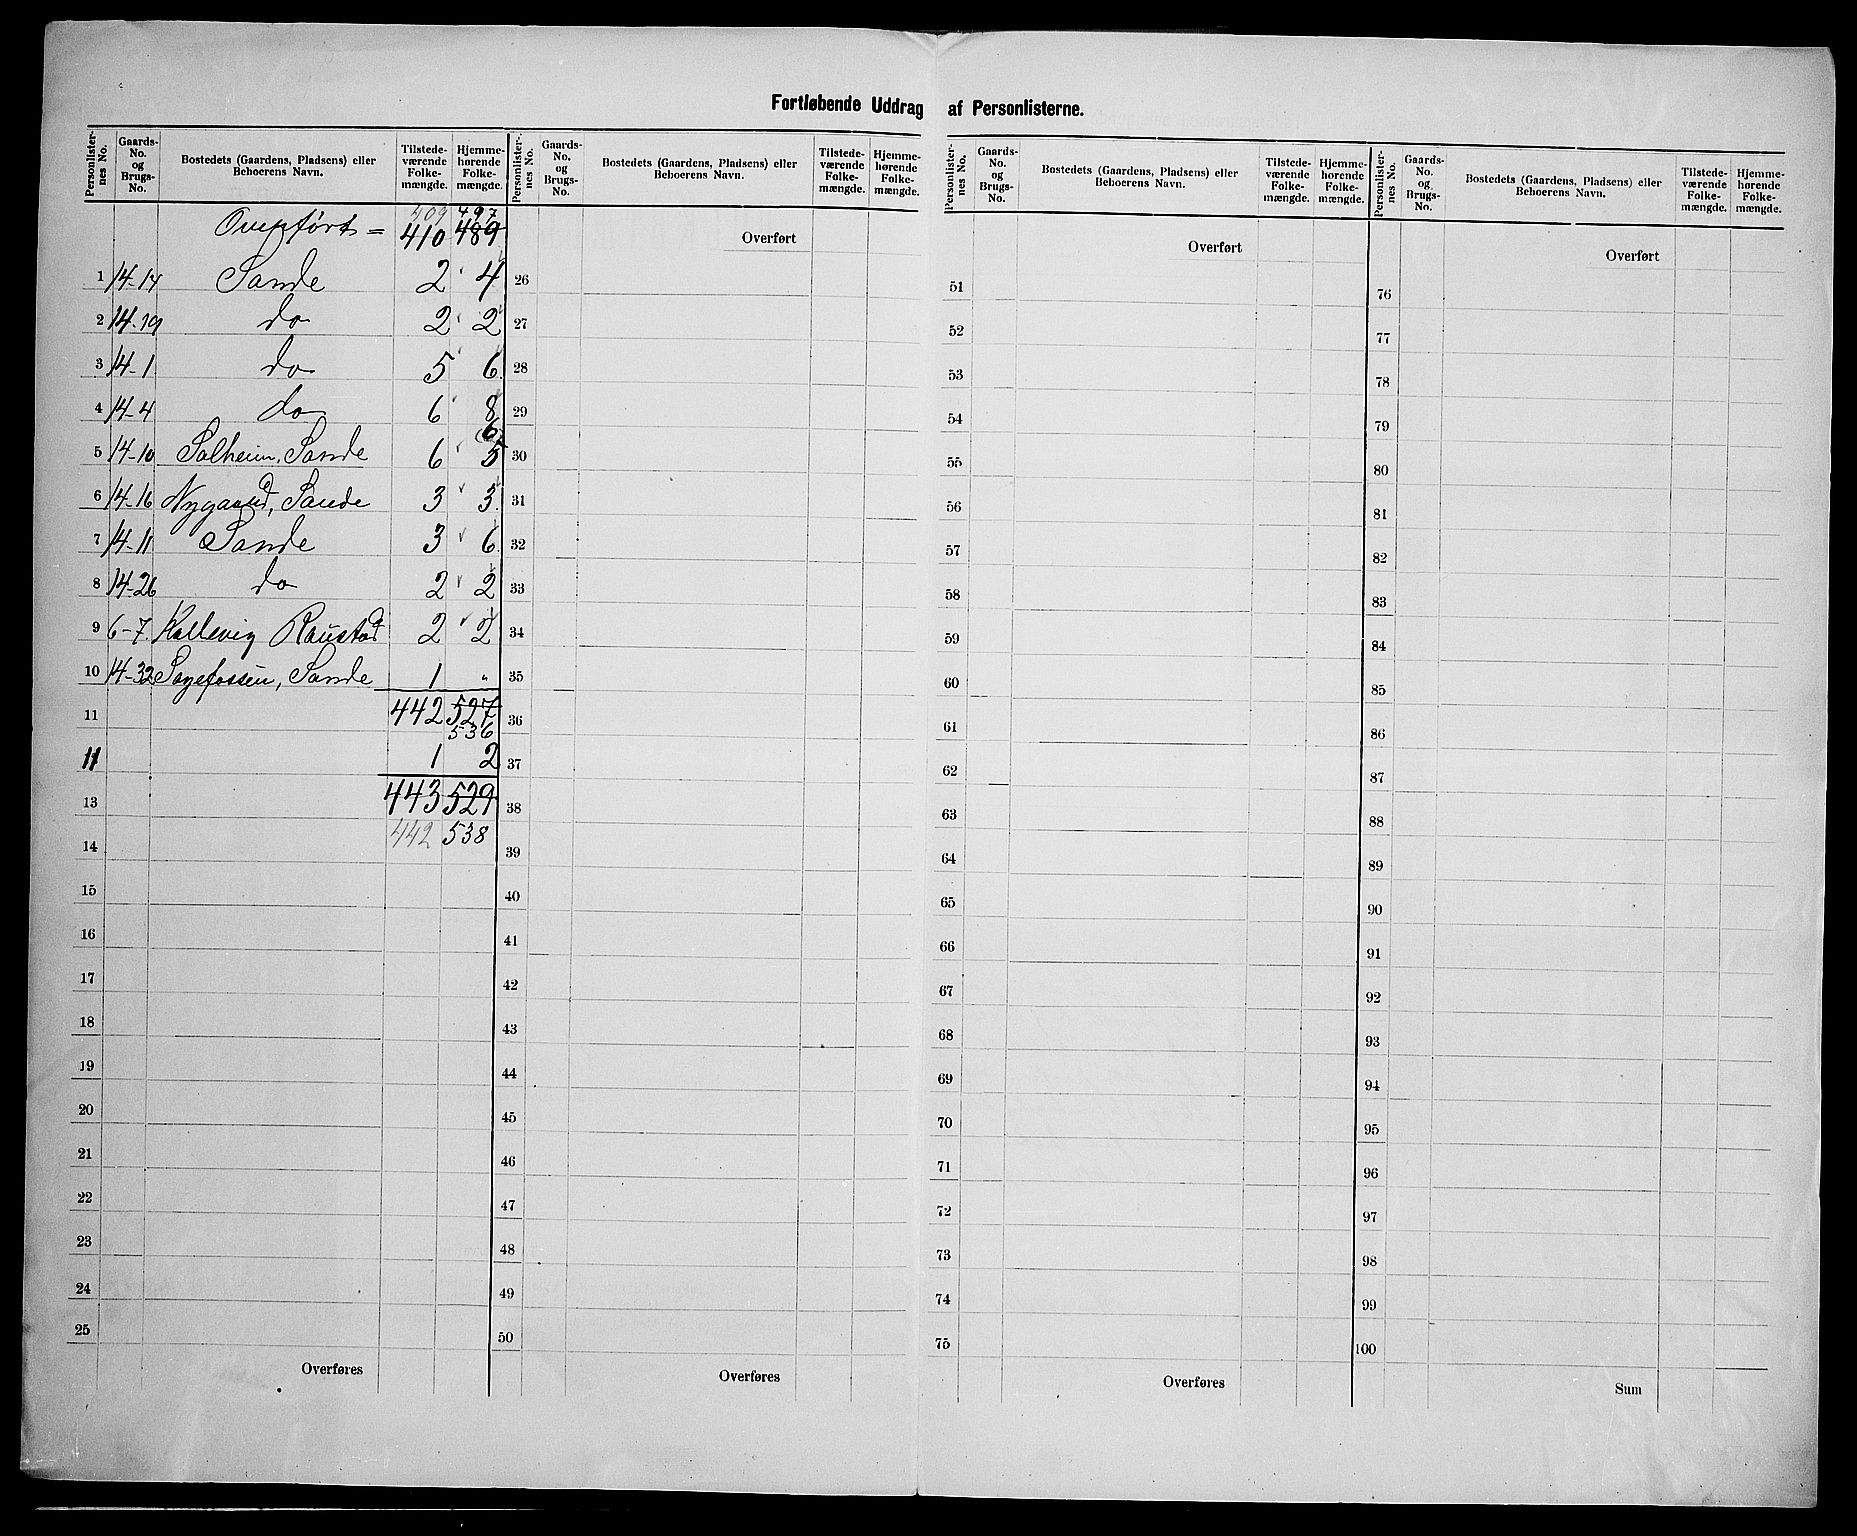 Fortløbende Uddrag af Personlisterne.
Personlister-nes No. Gaards-No. og Brugs-No. Bostedets (Gaardens, Pladsens) eller Beboerens Navn. Tilstede-værende Folke-mængde. Hjemme-hørende Folke-mængde.
Personlister-nes No. Gaards-No. og Brugs-No. Bostedets (Gaardens, Pladsens) eller Beboerens Navn. Tilstede-værende Folke-mængde. Hjemme-hørende Folke-mængde.
Personlister-nes No. Gaards-No. og Brugs-No. Bostedets (Gaardens, Pladsens) eller Beboerens Navn. Tilstede-værende Folke-mængde. Hjemme-hørende Folke-mængde.
Personlister-nes No. Gaards-No. og Brugs-No. Bostedets (Gaardens, Pladsens) eller Beboerens Navn. Tilstede-værende Folke-mængde. Hjemme-hørende Folke-mængde.
409 497
Overført = 410 489
1 14-14 Sande 2 4
2 14-19 do 2 2
3 14-1 do 5 6
4 14-4 do 6 8
6
5 14-10 Solheim, Sande 6 5
6 14-16 Nygaard, Sande 3 3
7 14-11 Sande 3 6
8 14-26 do 2 2
9 6-7 Kallevig Raustad 2 2
10 14-32 Sagefossen, Sande 1 "
11 442 527
536
11 1 2
13 443 529
442 538
14
15
16
17
18
19
20
21
22
23
24
25
Overføres
Overført
26
27
28
29
30
31
32
33
34
35
36
37
38
39
40
41
42
43
44
45
46
47
48
49
50
Overføres
Overført
51
52
53
54
55
56
57
58
59
60
61
62
63
64
65
66
67
68
69
70
71
72
73
74
75
Overføres
Overført
76
77
78
79
80
81
82
83
84
85
86
87
88
89
90
91
92
93
94
95
96
97
98
99
100
Sum